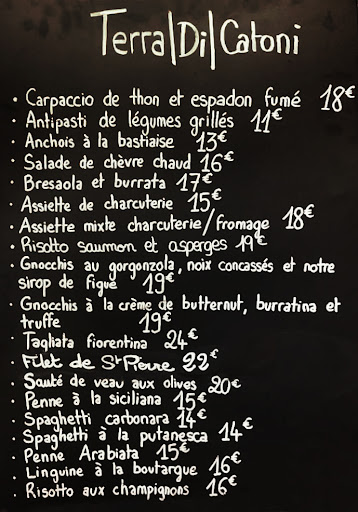 Terra|Di|Catoni
• Carpaccio de thon et espadon fumé 18€
• Antipasti de légumes grillés 11€
• Anchois à la bastiaise 13€
• Salade de chèvre chaud 16€
• Bresaola et burrata 17€
• Assiette de charcuterie 15€
• Assiette mixte charcuterie/fromage 18€
• Risotto saumon et asperges 19€
• Gnocchis au gorgonzola, noix concassés et notre
sirop de figue 19€
• Gnocchis à la crème de butternut, burratina et
truffe 19€
• Tagliata fiorentina 24€
• Filet de St Pierre 22€
• Sauté de veau aux olives 20€
• Penne à la siciliana 15€
• Spaghetti carbonara 14€
• Spaghetti à la putanesca 14€
• Penne Arabiata 15€
• Linguine à la boutargue 16€
• Risotto aux champignons 16€